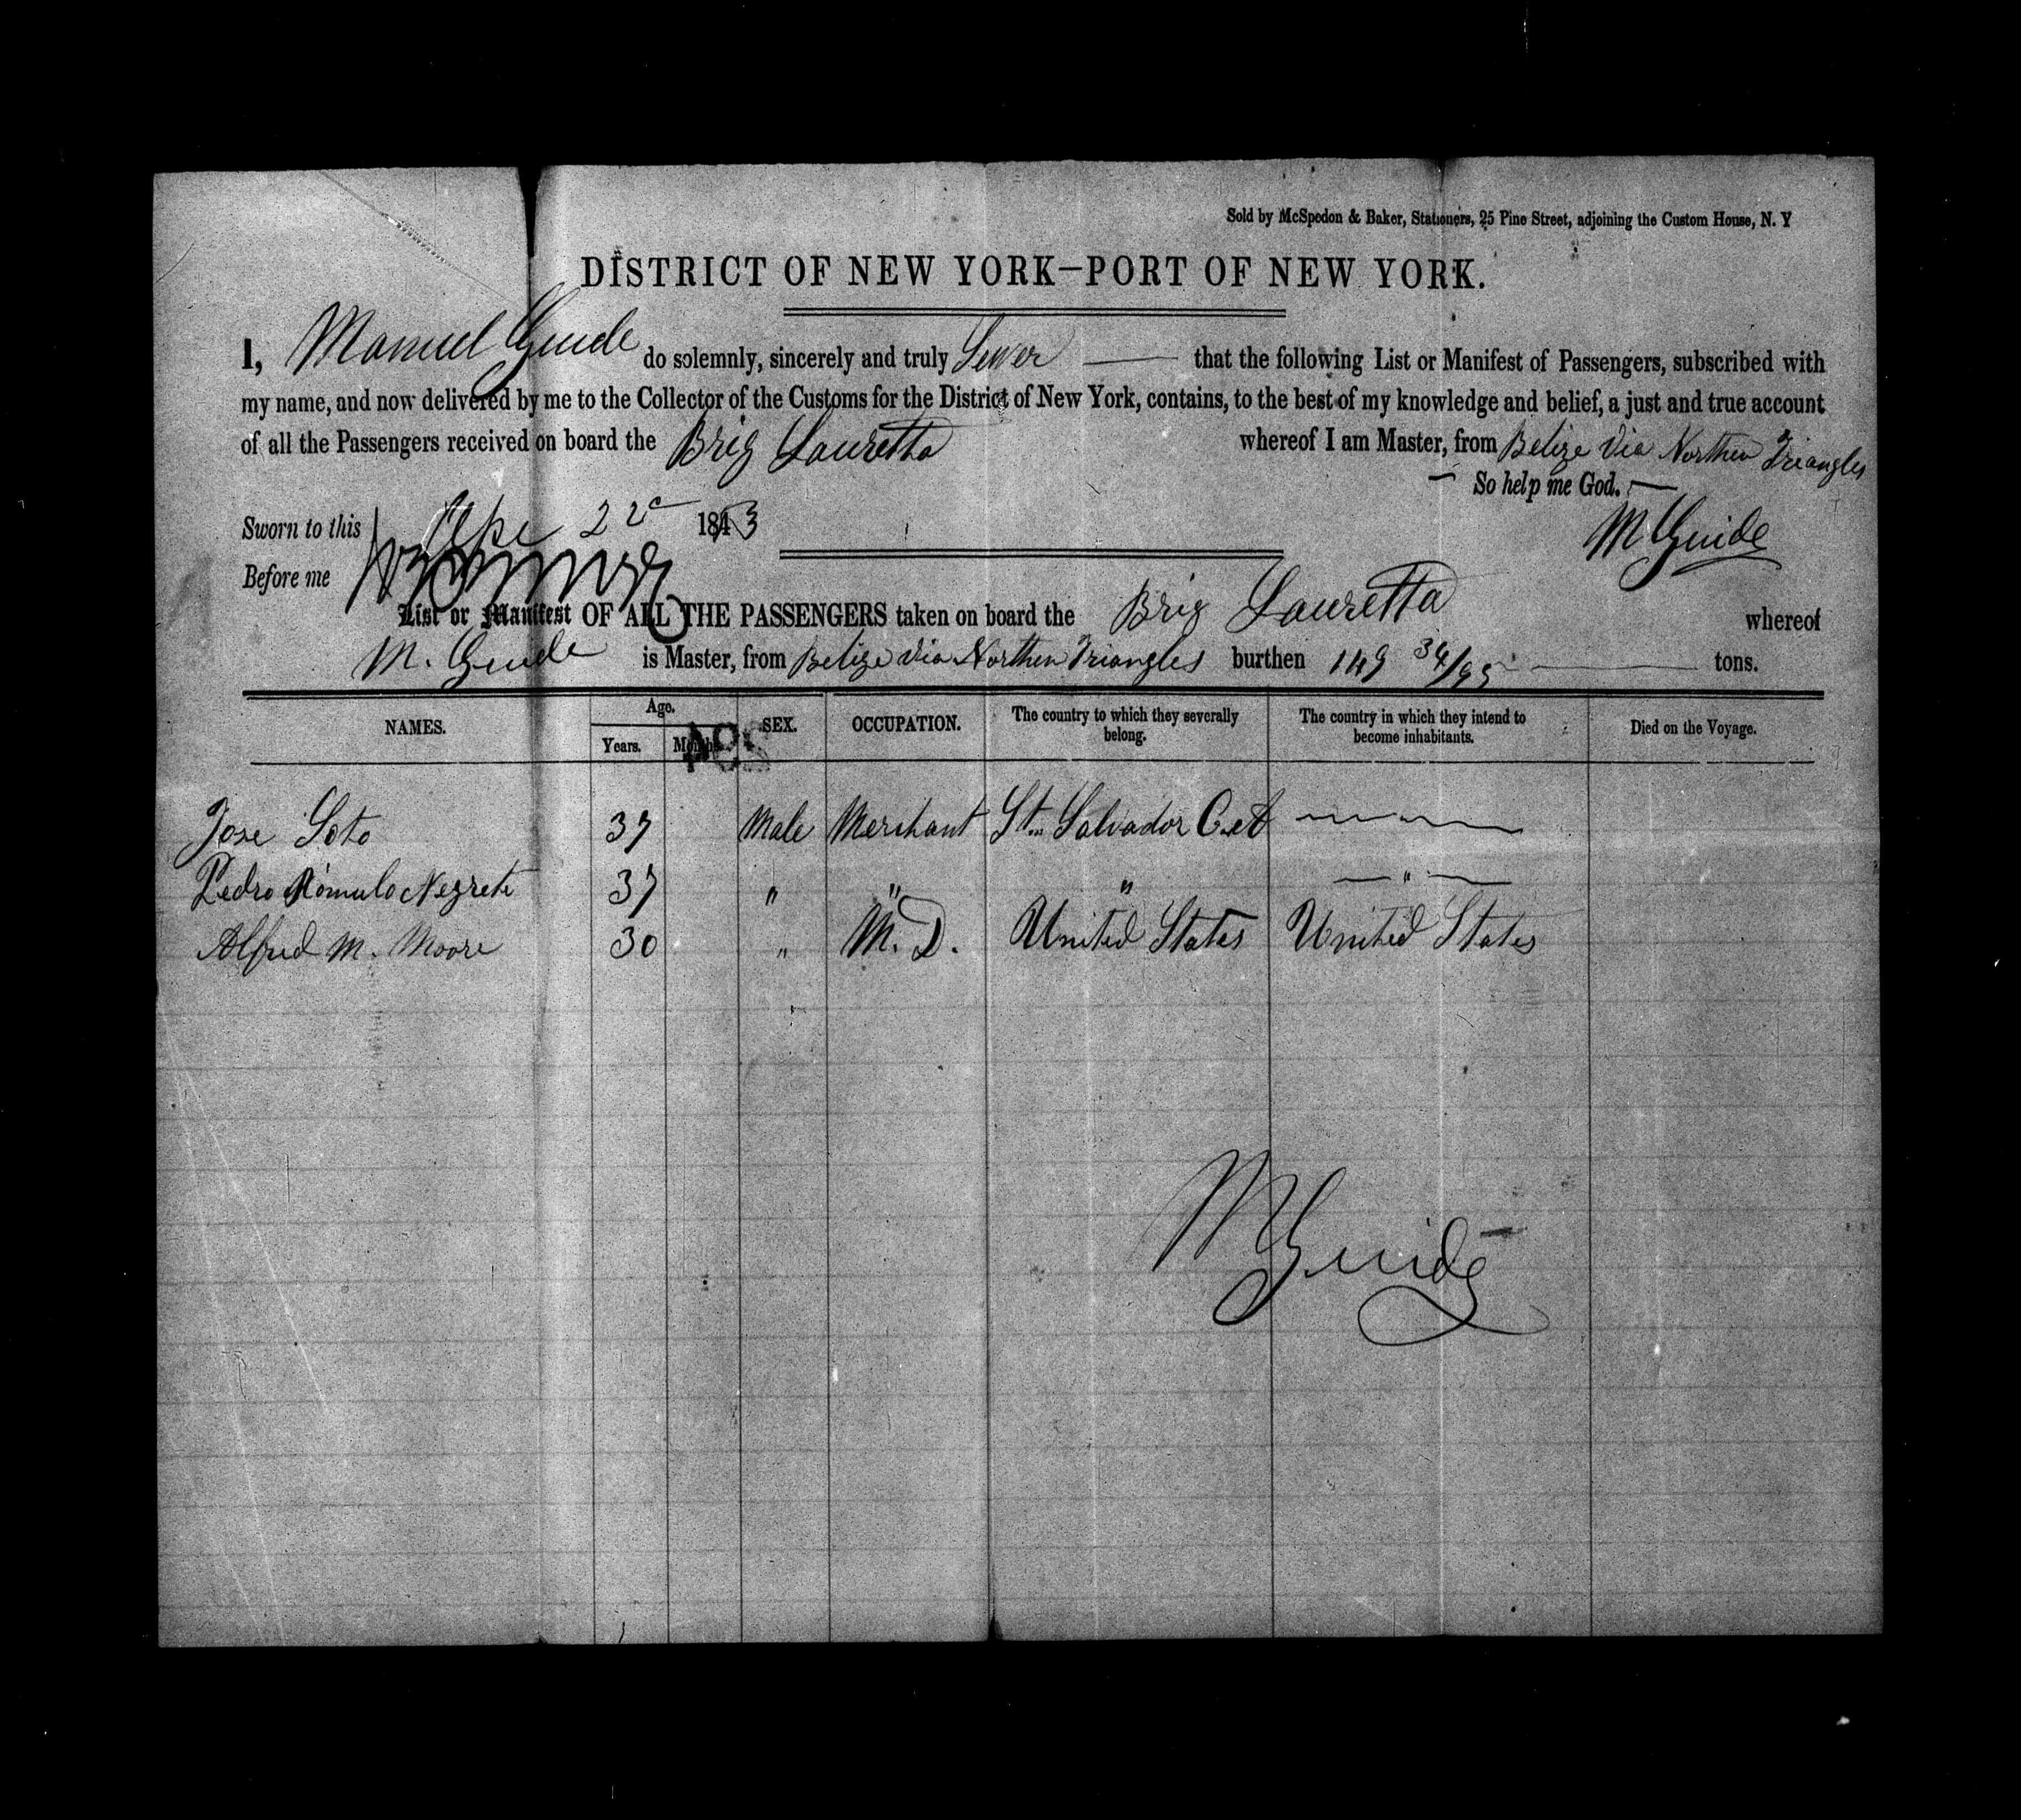 Sold by McSpedon & Baker, Stationers, 25 Pine Street, adjoining the Custom House, N. Y
DISTRICT OF NEW YORK—PORT OF NEW YORK.
I, Manuel Guide do solemnly, sincerely and truly Swear that the following List or Manifest of Passengers, subscribed with
my name, and now delivered by me to the Collector of the Customs for the District of New York, contains, to the best of my knowledge and belief, a just and true account
of all the Passengers received on board the Brig Lauretta whereof I am Master, from Belize Via Northen Triangles
So help me God.
Sworn to this 22 1853
M Guide
Before me
List or Manifest OF ALL THE PASSENGERS taken on board the Brig Lauretta whereof
M. Guide is Master, from Belize via Northen Triangles burthen 149 34/95 tons.
NAMES. Age. Years. Months. SEX. OCCUPATION. The country to which they severally belong. The country in which they intend to become inhabitants. Died on the Voyage.
Jose Soto 37 Male Merchant St. Salvador C.A
Pedro Romulo Negrete 37 " " " "
Alfred M. Moore 30 " M. D. United States United States
M Guide